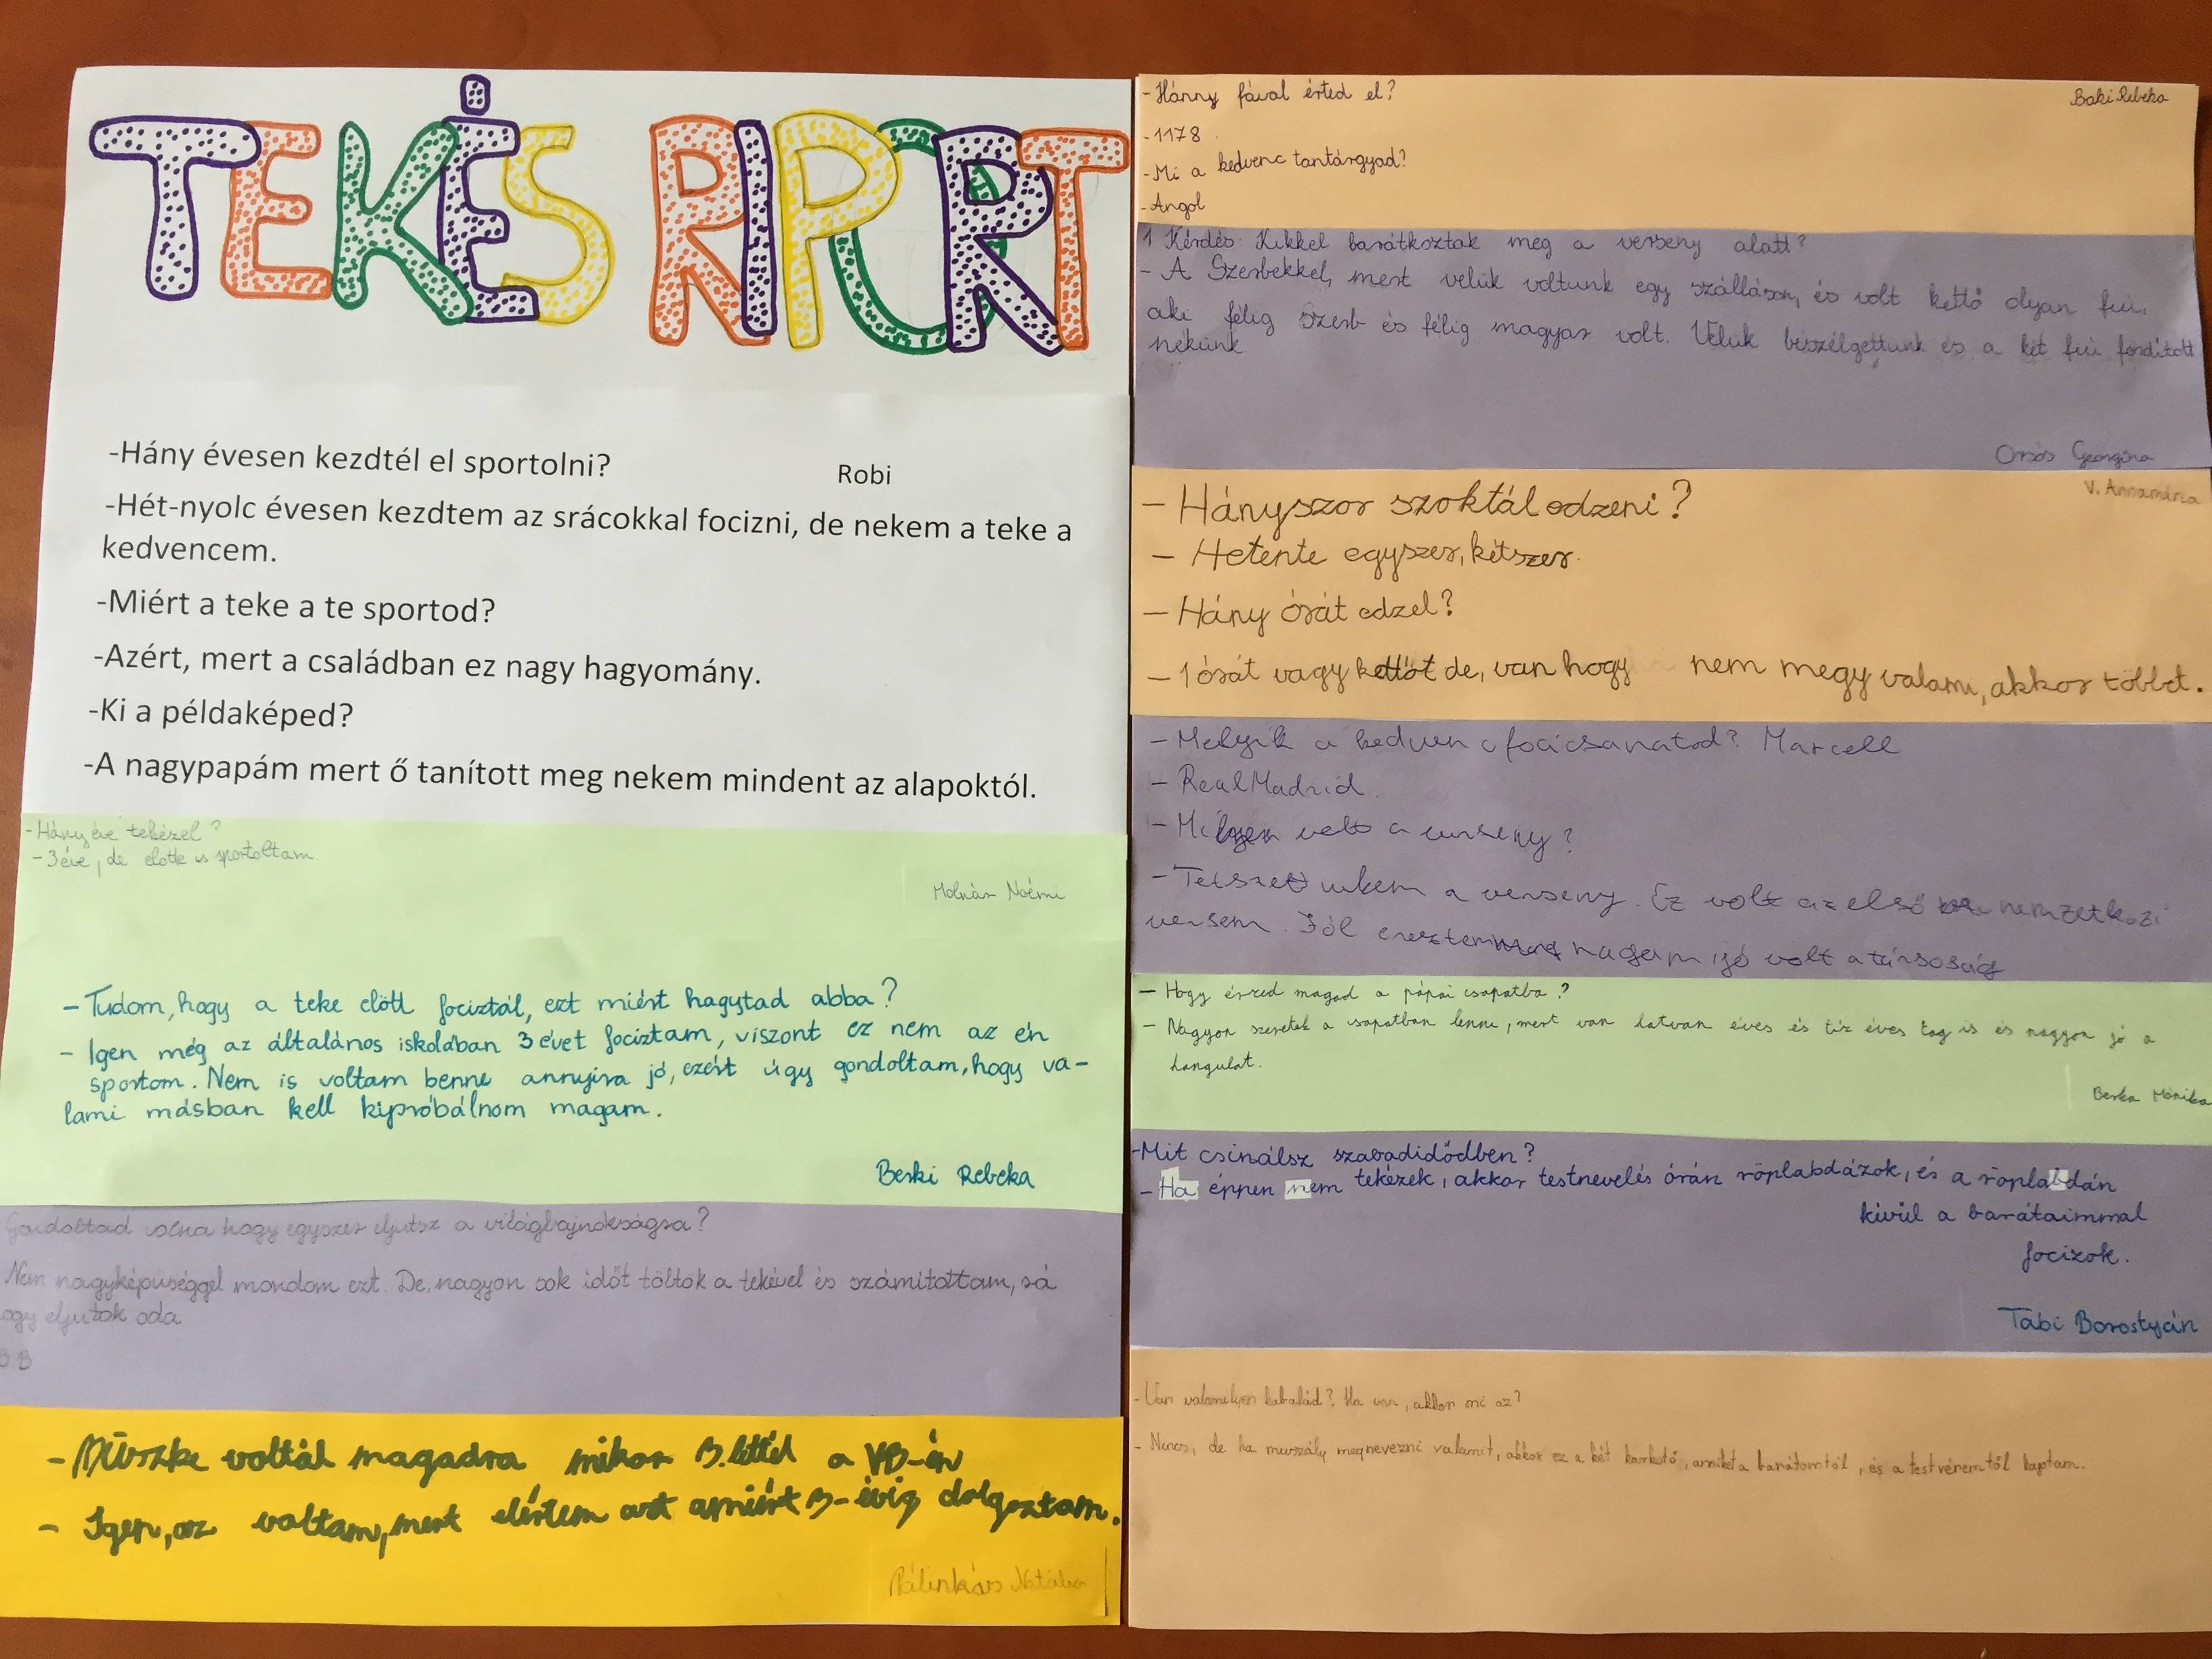 TEKÉS RIPORT
-Hány évesen kezdtél el sportolni?
Robi
-Hét-nyolc évesen kezdtem az srácokkal focizni, de nekem a teke a
kedvencem.
-Miért a teke a te sportod?
-Azért, mert a családban ez nagy hagyomány.
-Ki a példaképed?
-A nagypapám mert ő tanított meg nekem mindent az alapoktól.
-Hány éve tekézel?
-3 éve, de előtte is sportoltam.
Molnár Noémi
-Tudom, hogy a teke előtt fociztál, ezt miért hagytad abba?
- Igen még az általános iskolában 3 évet fociztam, viszont ez nem az én
sportom. Nem is voltam benne annyira jó, ezért úgy gondoltam, hogy va-
lami másban kell kipróbálnom magam.
Berki Rebeka
Gondoltad volna hogy egyszer eljutsz a világbajnokságra?
Nem nagyképűséggel mondom ezt. De, nagyon sok időt töltök a tekével és számítottam, rá
ogy eljutok oda
B.B
- Büszke voltál magadra mikor 3. lettél a VB-én
- Igen, az voltam, mert elértem azt amiért 3-évig dolgoztam.
Pálinkás Natália
-Hánny fával érted el?
Baki Rebeka
-1178
-Mi a kedvenc tantárgyad?
-Angol
1 Kérdés: Kikkel barátkoztak meg a verseny alatt?
- A Szerbekkel, mert velük voltunk egy szálláson, és volt kettő olyan fiú,
aki félig szerb és félig magyar volt. Velük beszélgettünk és a két fiú fordított
nekünk
Orsós Georgina
V. Annamária
- Hányszor szoktál edzeni?
- Hetente egyszer, kétszer.
- Hány órát edzel?
- 1 órát vagy kettőt de, van hogy nem megy valami, akkor többet.
- Melyik a kedvenc focicsapatod? Marcell
- Real Madrid.
- Milyen volt a verseny?
- Tetszett nekem a verseny. Ez volt az első nemzetközi
versem. Jól éreztem magam jó volt a társaság
- Hogy érzed magad a pápai csapatba?
- Nagyon szeretek a csapatban lenni, mert van hatvan éves és tíz éves tag is és nagyon jó a
hangulat.
Berka Mónika
-Mit csinálsz szabadidődben?
-Ha éppen nem tekézek, akkor testnevelés órán röplabdázok, és a röplabdán
kívül a barátaimmal
focizok.
Tabi Borostyán
-Van valamilyen kabalád? Ha van, akkor mi az?
- Nincs, de ha muszály megnevezni valamit, akkor ez a két karkötő, amiket a barátomtól, és a testvéremtől kaptam.